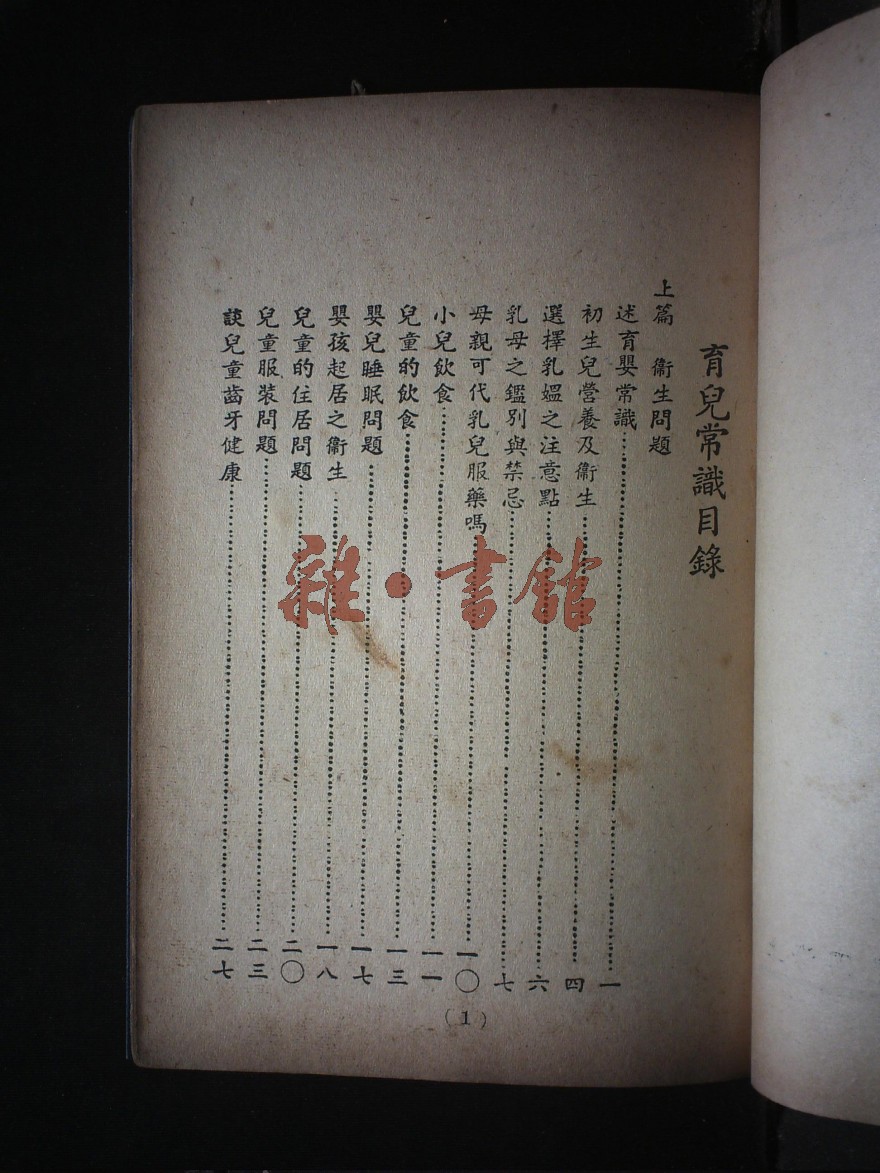 育兒常識目錄
上篇 衛生問題
述育嬰常識……一
初生兒營養及衛生……四
選擇乳媼之注意點……六
乳母之鑑別與禁忌……七
母親可代乳兒服藥嗎……一〇
小兒飲食……一一
兒童的飲食……一三
嬰兒睡眠問題……一七
嬰孩起居之衛生……一八
兒童的住居問題……二〇
兒童服裝問題……二三
談兒童齒牙健康……二七
(1)
雜·書館